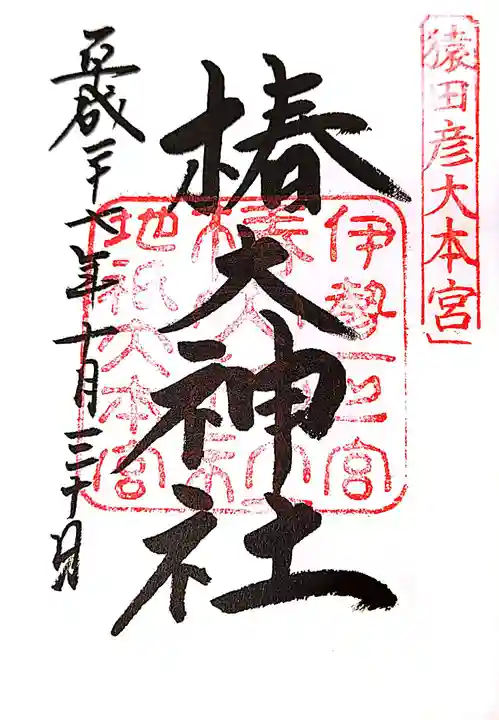 猿田彦大本宮
伊勢一之宮
椿大神社
椿大神社
地祇大本宮
平成二十七年十月三十日